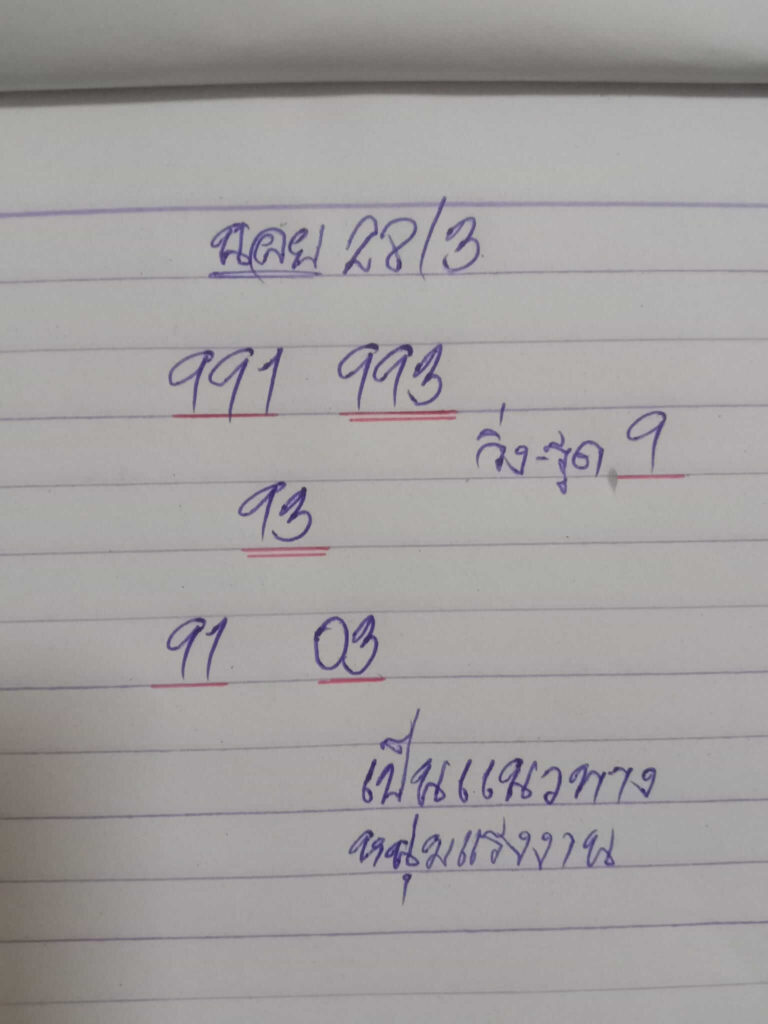 นอย 28/3
991 993
วิ่ง-รูด 9
93
91 03
เป็นแนวทาง
หนุ่มแรงงาน